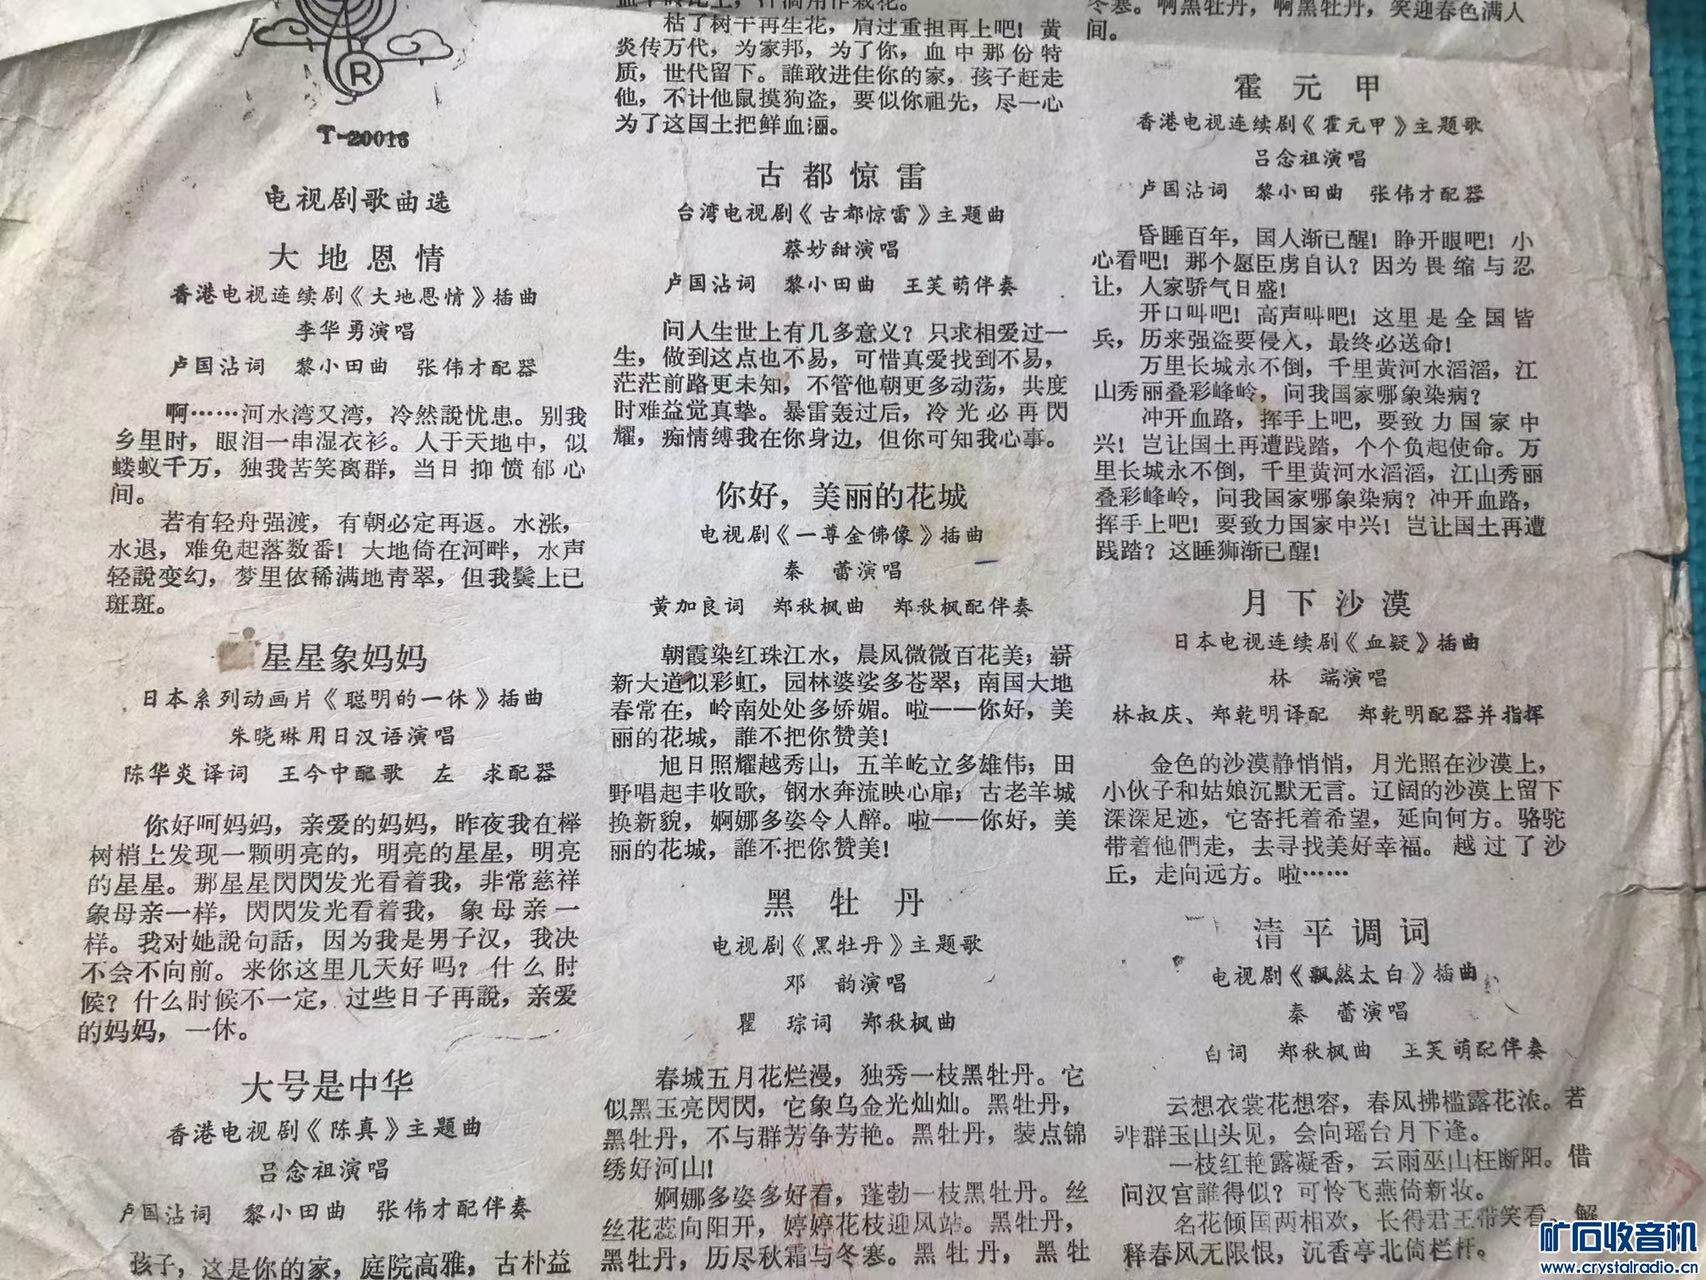 R
T-20016
电视剧歌曲选
大地恩情
香港电视连续剧《大地恩情》插曲
李华勇演唱
卢国沾词 黎小田曲 张伟才配器
啊……河水湾又湾，冷然說忧患。别我
乡里时，眼泪一串湿衣衫。人于天地中，似
蝼蚁千万，独我苦笑离群，当日抑愤郁心
间。
若有轻舟强渡，有朝必定再返。水涨，
水退，难免起落数番！大地倚在河畔，水声
轻說变幻，梦里依稀满地青翠，但我鬓上已
斑斑。
星星象妈妈
日本系列动画片《聪明的一休》插曲
朱晓琳用日汉语演唱
陈华炎译词 王今中配歌 左 求配器
你好呵妈妈，亲爱的妈妈，昨夜我在榉
树梢上发现一颗明亮的，明亮的星星，明亮
的星星。那星星閃閃发光看着我，非常慈祥
象母亲一样，閃閃发光看着我，象母亲一
样。我对她說句話，因为我是男子汉，我决
不会不向前。来你这里几天好吗？什么时
候？什么时候不一定，过些日子再說，亲爱
的妈妈，一休。
大号是中华
香港电视剧《陈真》主题曲
吕念祖演唱
卢国沾词 黎小田曲 张伟才配伴奏
孩子，这是你的家，庭院高雅，古朴益
枯了树干再生花，肩过重担再上吧！黄
炎传万代，为家邦，为了你，血中那份特
质，世代留下。誰敢进住你的家，孩子赶走
他，不计他鼠摸狗盗，要似你祖先，尽一心
为了这国土把鲜血洒。
古都惊雷
台湾电视剧《古都惊雷》主题曲
蔡妙甜演唱
卢国沾词 黎小田曲 王芙萌伴奏
问人生世上有几多意义？只求相爱过一
生，做到这点也不易，可惜真爱找到不易，
茫茫前路更未知，不管他朝更多动荡，共度
时难益觉真挚。暴雷轰过后，冷光必再閃
耀，痴情缚我在你身边，但你可知我心事。
你好，美丽的花城
电视剧《一尊金佛像》插曲
秦 蕾演唱
黄加良词 郑秋枫曲 郑秋枫配伴奏
朝霞染红珠江水，晨风微微百花美；崭
新大道似彩虹，园林婆娑多苍翠；南国大地
春常在，岭南处处多娇媚。啦——你好，美
丽的花城，誰不把你赞美！
旭日照耀越秀山，五羊屹立多雄伟；田
野唱起丰收歌，钢水奔流映心扉；古老羊城
换新貌，婀娜多姿令人醉。啦——你好，美
丽的花城，誰不把你赞美！
黑牡丹
电视剧《黑牡丹》主题歌
邓 韵演唱
瞿 琮词 郑秋枫曲
春城五月花烂漫，独秀一枝黑牡丹。它
似黑玉亮閃閃，它象乌金光灿灿。黑牡丹，
黑牡丹，不与群芳争芳艳。黑牡丹，装点锦
绣好河山！
婀娜多姿多好看，蓬勃一枝黑牡丹。丝
丝花蕊向阳开，婷婷花枝迎风站。黑牡丹，
黑牡丹，历尽秋霜与冬寒。黑牡丹，黑牡
冬寒。啊黑牡丹，啊黑牡丹，笑迎春色满人
间。
霍元甲
香港电视连续剧《霍元甲》主题歌
吕念祖演唱
卢国沾词 黎小田曲 张伟才配器
昏睡百年，国人渐已醒！睁开眼吧！小
心看吧！那个愿臣虏自认？因为畏缩与忍
让，人家骄气日盛！
开口叫吧！高声叫吧！这里是全国皆
兵，历来强盗要侵入，最终必送命！
万里长城永不倒，千里黄河水滔滔，江
山秀丽叠彩峰岭，问我国家哪象染病？
冲开血路，挥手上吧，要致力国家中
兴！岂让国土再遭践踏，个个负起使命。万
里长城永不倒，千里黄河水滔滔，江山秀丽
叠彩峰岭，问我国家哪象染病？冲开血路，
挥手上吧！要致力国家中兴！岂让国土再遭
践踏？这睡狮渐已醒！
月下沙漠
日本电视连续剧《血疑》插曲
林 端演唱
林叔庆、郑乾明译配 郑乾明配器并指挥
金色的沙漠静悄悄，月光照在沙漠上，
小伙子和姑娘沉默无言。辽阔的沙漠上留下
深深足迹，它寄托着希望，延向何方。骆驼
带着他們走，去寻找美好幸福。越过了沙
丘，走向远方。啦……
清平调词
电视剧《飘然太白》插曲
秦 蕾演唱
白词 郑秋枫曲 王芙萌配伴奏
云想衣裳花想容，春风拂槛露花浓。若
非群玉山头见，会向瑶台月下逢。
一枝红艳露凝香，云雨巫山枉断阳。借
问汉宫誰得似？可怜飞燕倚新妆。
名花倾国两相欢，长得君王带笑看。解
释春风无限恨，沉香亭北倚栏杆。
矿石收音机
www.crystalradio.cn